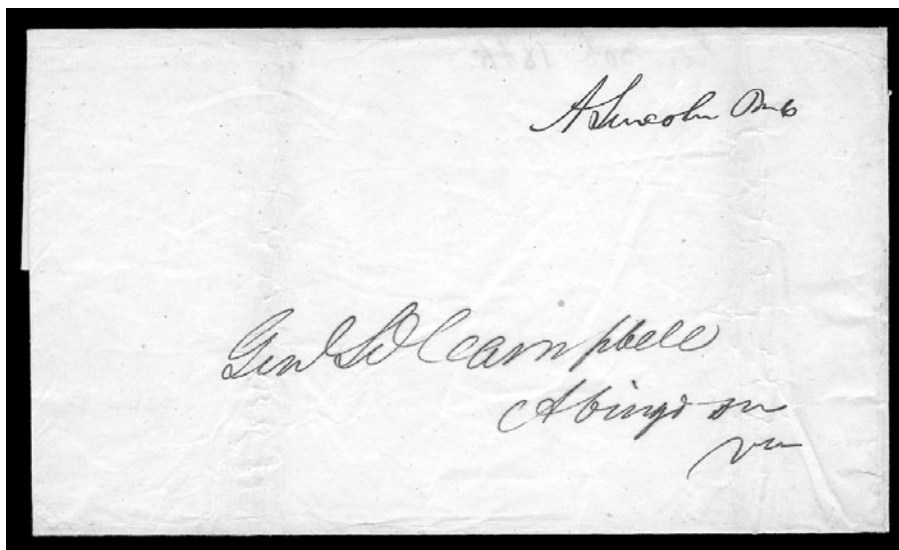 A Lincoln
Genl Campbell
Abingdon
Va